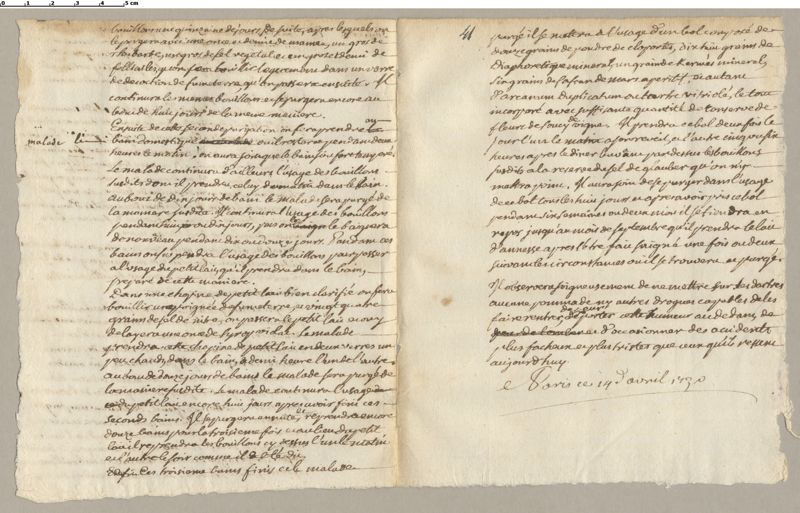 0 1 2 3 4 5 cm
bouillon une quinzaine de jours de suite, apres lesquels on
le purgera avec une once et demie de manne, un gros de
rhubarbe, un gros de sel vegetal et un gros et demi de
follicules, qu'on fera bouillir legerement dans un verre
de decoction de fumeterre qu'on passera ensuite. Il
continuera le meme bouillon et se purgera encore au
bout de huit jours de la meme maniere.
Ensuite de cette seconde purgation il fera prendre au
malade le bain domestique ou il restera pendant deux
heures le matin. on aura soin que le bain soit fort temperé.
Le malade continuera d'ailleurs l'usage des bouillons
susdits dont il prendra celuy du matin dans le bain.
au bout de dix jours de bain le malade sera purgé de
la maniere susdite. Il continuera l'usage des bouillons
pendant huit ou dix jours, puis on le baignera
de nouveau pendant dix ou douze jours. Pendant ces
bains on suspendra l'usage des bouillons pour passer
a l'usage du petit lait, qu'il prendra dans le bain,
preparé de cette maniere.
Dans une chopine de petit lait bien clarifié on fera
bouillir une poignée de fumeterre et vingt quatre
grains de sel de nitre, on passera le petit lait et on y
delayera une once de syrop violat. Le malade
prendra cette chopine de petit lait en deux verres un
peu chauds, dans le bain, a demi heure l'un de l'autre
au bout de douze jours de bains le malade sera purgé de
la maniere susdite. Le malade continuera l'usage
de petit lait encore huit jours apres avoir fini ces
seconds bains. Il se purgera ensuite, et reprendra encore
douze bains pour la troisieme fois et au lieu de petit
lait il reprendra les bouillons cy dessus l'un le matin
et l'autre le soir comme il a été dit.
Ces troisieme bains finis et le malade
41
purgé il se mettra a l'usage d'un bol composé de
douze grains de poudre de cloportes, dix huit grains de
diaphoretique mineral, un grain de kermes mineral,
six grains de safran de mars aperitif, et autant
d'arcanum duplicatum ou tartre vitriolé, le tout
incorporé avec suffisante quantité de conserve de
fleurs de souci. Il prendra ce bol deux fois le
jour l'un le matin a son reveil, et l'autre cinq ou six
heures apres le diner buvant par dessus les bouillons
susdits a la reserve du sel de glauber qu'on n'y
mettra point. Il aura soin de se purger dans l'usage
de ce bol tous les huit jours et apres avoir pris ce bol
pendant six semaines ou deux mois il se tiendra en
repos jusqu'au mois de septembre qu'il prendra le lait
d'annesse apres s'etre fait saigné une fois ou deux
suivant les circonstances ou il se trouvera et purgé.
Il observera soigneusement de ne mettre sur ses dartres
aucune pommade ny autres drogues capables de les
faire rentrer de porter cette humeur au dedans, de
et d'occasionner des accidents
plus facheux et plus tristes que ceux qu'il ressent
aujourd'huy.
a Paris ce 14 d'avril 1730